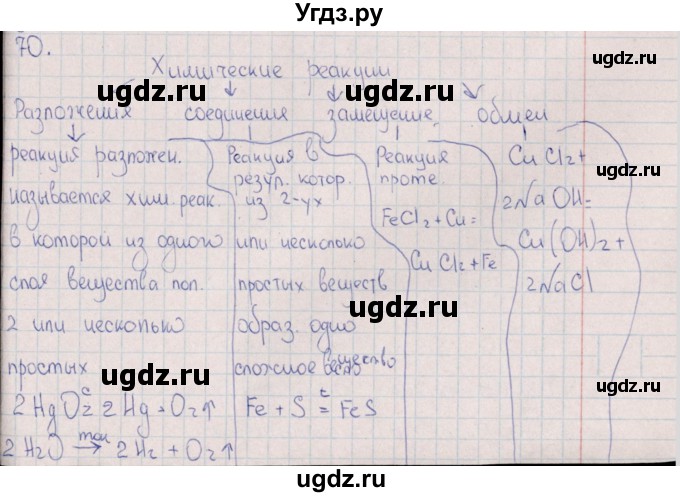 Угдз.ру
70.
Химические реакции
ugdz.ru ugdz.ru
Разложения соединения замещение обмен
реакция разложен.
называется хим. реак.
в которой из одного
слож вещества пол.
2 или несколько
простых
2HgO = 2Hg + O2↑
2H2O ток → 2H2 + O2↑
Реакция в
резул. котор.
из 2-ух
или несколько
простых веществ
образ. одно
сложное вещество
Fe + S t= FeS
Реакция
проте.
FeCl2 + Cu =
CuCl2 + Fe
CuCl2 +
2NaOH =
Cu(OH)2 +
2NaCl
ugdz.ru ugdz.ru
ugdz.ru ugdz.ru
ugdz.ru ugdz.ru
ugdz.ru ugdz.ru